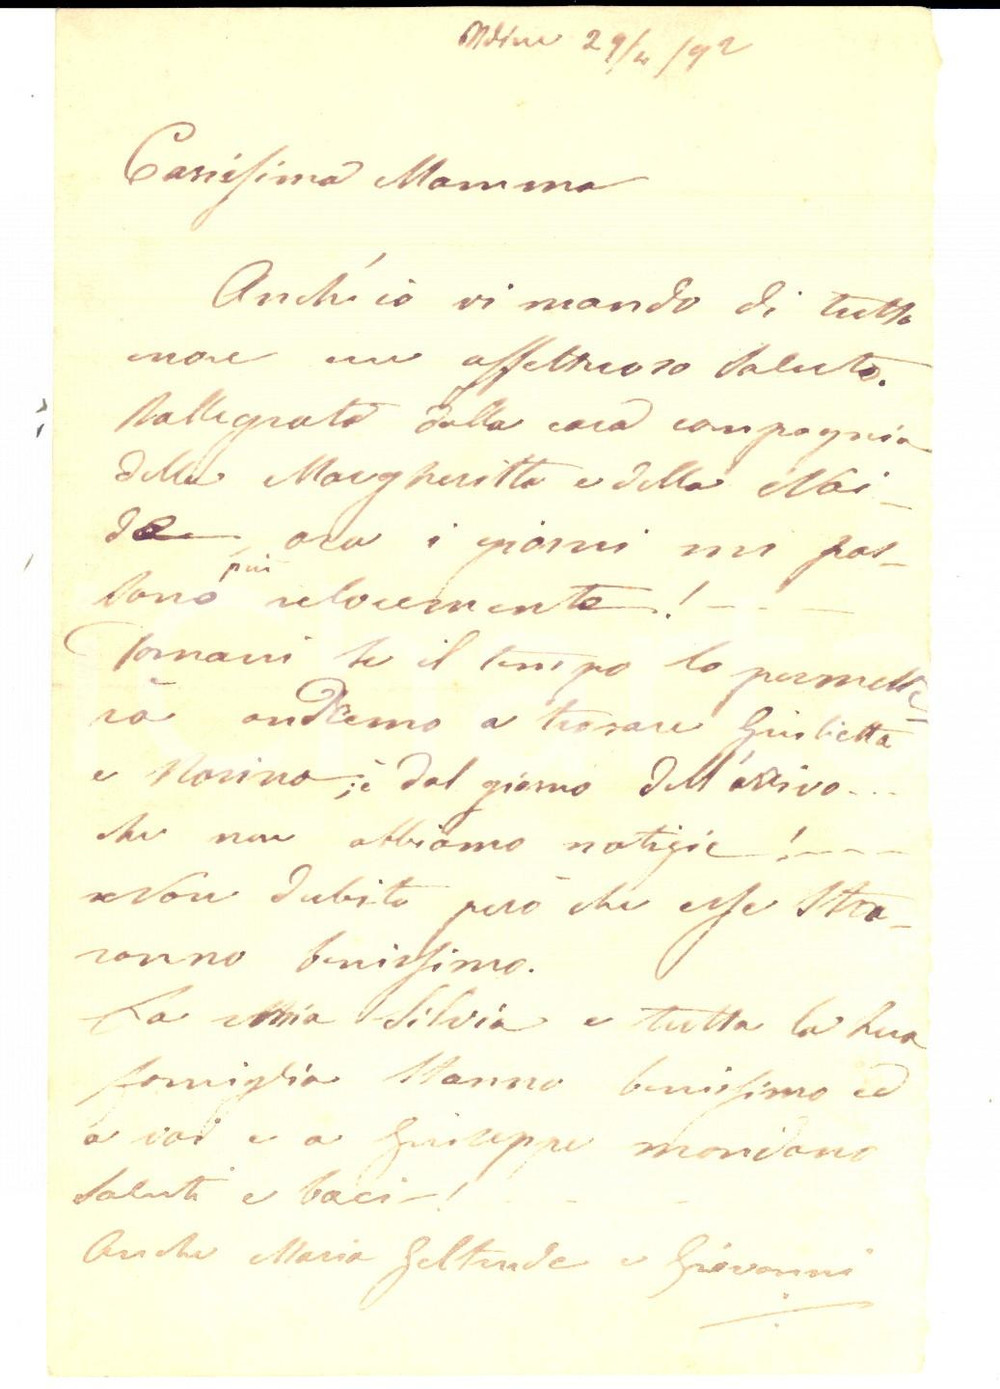 Udine 29/4/92
Carissima Mamma
Anch'io vi mando di tutto
cuore un affettuoso saluto.
Rallegrata dalla cara compagnia
della Margheritta e della Noi-
de ora i giorni mi pas-
sono più velocemente!
Domani se il tempo lo permette-
rà andremo a trovare Giulietta
e Norina; è dal giorno dell'arrivo...
che non abbiamo notizie!
Non dubito però che esse sta-
ranno benissimo.
La mia Silvia e tutta la sua
famiglia stanno benissimo ed
a voi e a Giuseppe mandano
saluti e baci!
Anche Maria Geltrude e Giovanni